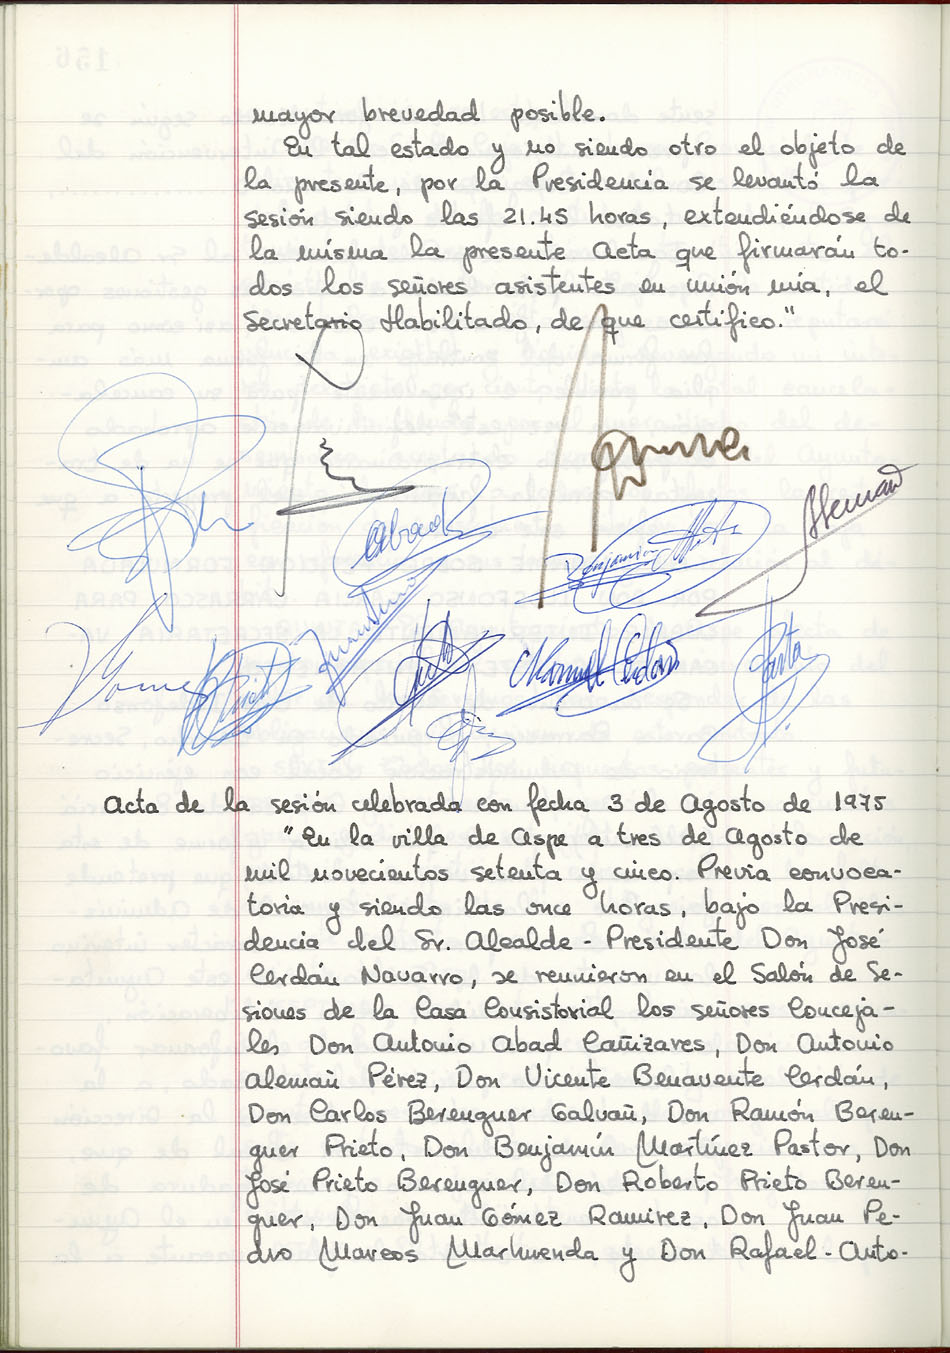 mayor brevedad posible.
En tal estado y no siendo otro el objeto de
la presente, por la Presidencia se levantó la
sesión siendo las 21.45 horas, extendiéndose de
la misma la presente Acta que firmarán to-
dos los señores asistentes en unión mía, el
Secretario Habilitado, de que certifico."
Alemañ
Benjamín
Manuel Cerdán
Acta de la sesión celebrada con fecha 3 de Agosto de 1975
"En la villa de Aspe a tres de Agosto de
mil novecientos setenta y cinco. Previa convoca-
toria y siendo las once horas, bajo la Presi-
dencia del Sr. Alcalde-Presidente Don José
Cerdán Navarro, se reunieron en el Salón de Se-
siones de la Casa Consistorial los señores Conceja-
les Don Antonio Abad Cañizares, Don Antonio
Alemañ Pérez, Don Vicente Benavente Cerdán,
Don Carlos Berenguer Galvañ, Don Ramón Beren-
guer Prieto, Don Benjamín Martínez Pastor, Don
José Prieto Berenguer, Don Roberto Prieto Beren-
guer, Don Juan Gómez Ramirez, Don Juan Pe-
dro Marcos Marhuenda y Don Rafael-Anto-